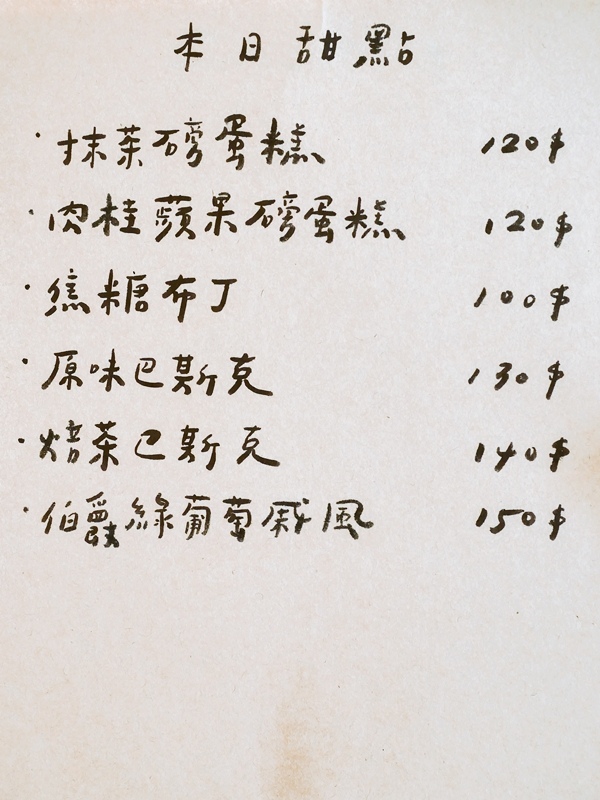 本日甜點
· 抹茶磅蛋糕 120$
· 肉桂蘋果磅蛋糕 120$
· 焦糖布丁 100$
· 原味巴斯克 130$
· 焙茶巴斯克 140$
· 伯爵綠葡萄戚風 150$